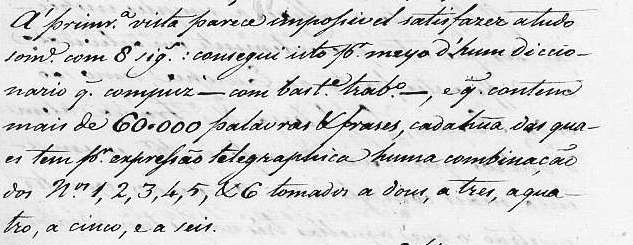 A' primr.ª vista parece impossivel satisfazer a tudo
som.e com 8 sig.s: consegui isto p.r meyo d'hum diccio-
nario q. compuz — com bast.e trab.o —, e q. contem
mais de 60.000 palavras & frases, cada hũa das qua-
es tem p.r expressão telegraphica huma combinação
dos N.os 1, 2, 3, 4, 5, & 6 tomados a dous, a tres, a qua-
tro, a cinco, e a seis.